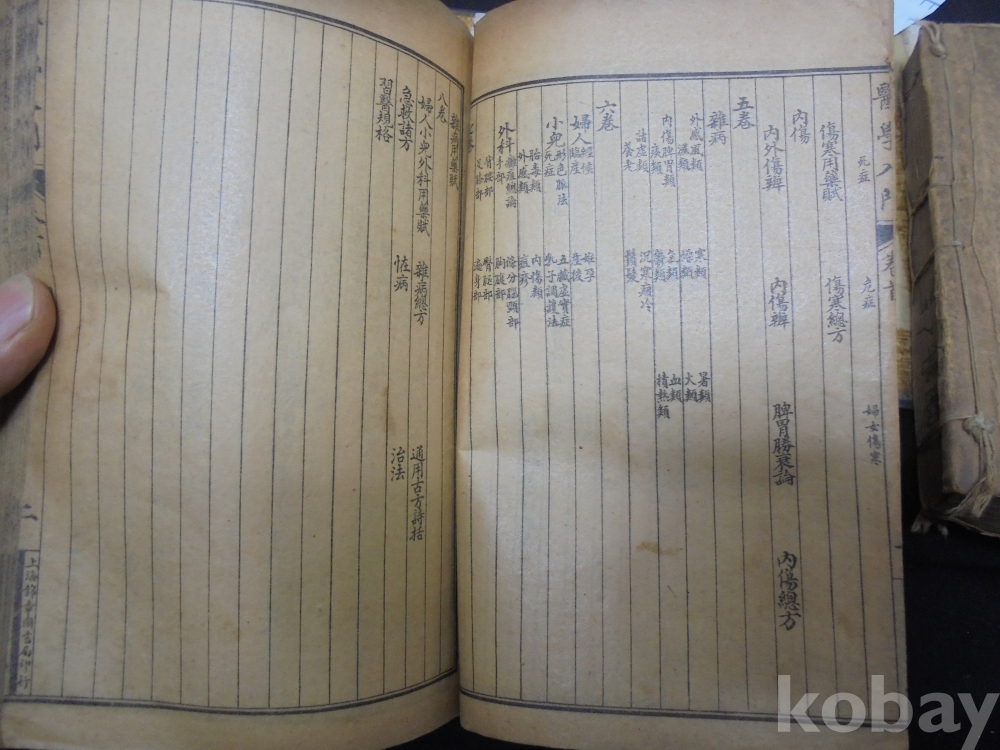 醫學入門 卷首
死症 危症 婦女傷寒
傷寒用藥賦 傷寒總方
內傷
內外傷辨 內傷辨 脾胃勝衰論 內傷總方
五卷
雜病
外感風類 寒類 暑類
濕類 燥類 火類
內傷脾胃類 氣類 血類
痰類 鬱類 積熱類
諸虛類 沉寒痼冷
養老
六卷
婦人經候 胎孕
臨產 產後
小兒形色脈法 五臟虛實症
死症 乳子調護法
胎毒類 內傷類
外感類 痘疹
外科癰疽總論
手部 胸腹部
背腰部 臀股部
足膝部 遍身部
雜病用藥賦
八卷
婦人小兒外科用藥賦 雜病總方 通用古方詩括
急救諸方 怪病 治法
習醫規格
二
上海錦章圖書局印行
kobay